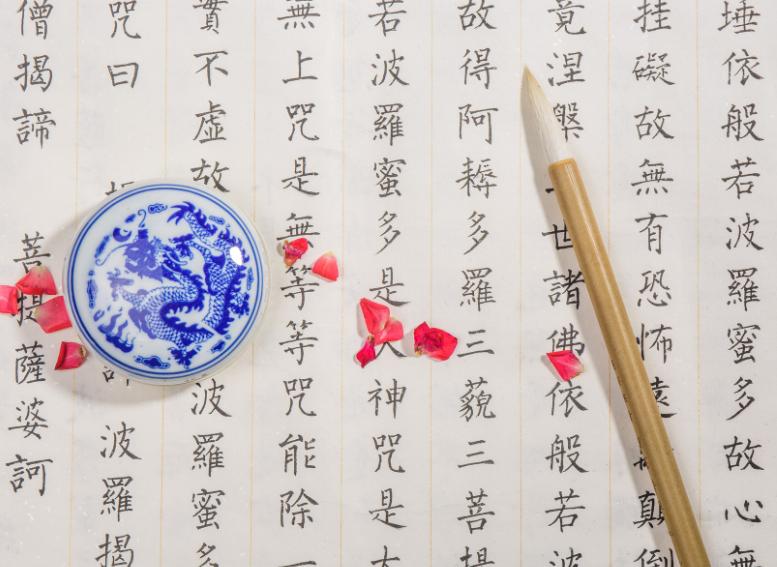 埵依般若波羅蜜多故心無
挂礙故無有恐怖遠顛倒
竟涅槃世諸佛依般若波
故得阿耨多羅三藐三菩提
若波羅蜜多是大神咒是大
無上咒是無等等咒能除一
實不虛故波羅蜜多
咒曰 波羅揭
僧揭諦 菩提薩婆訶